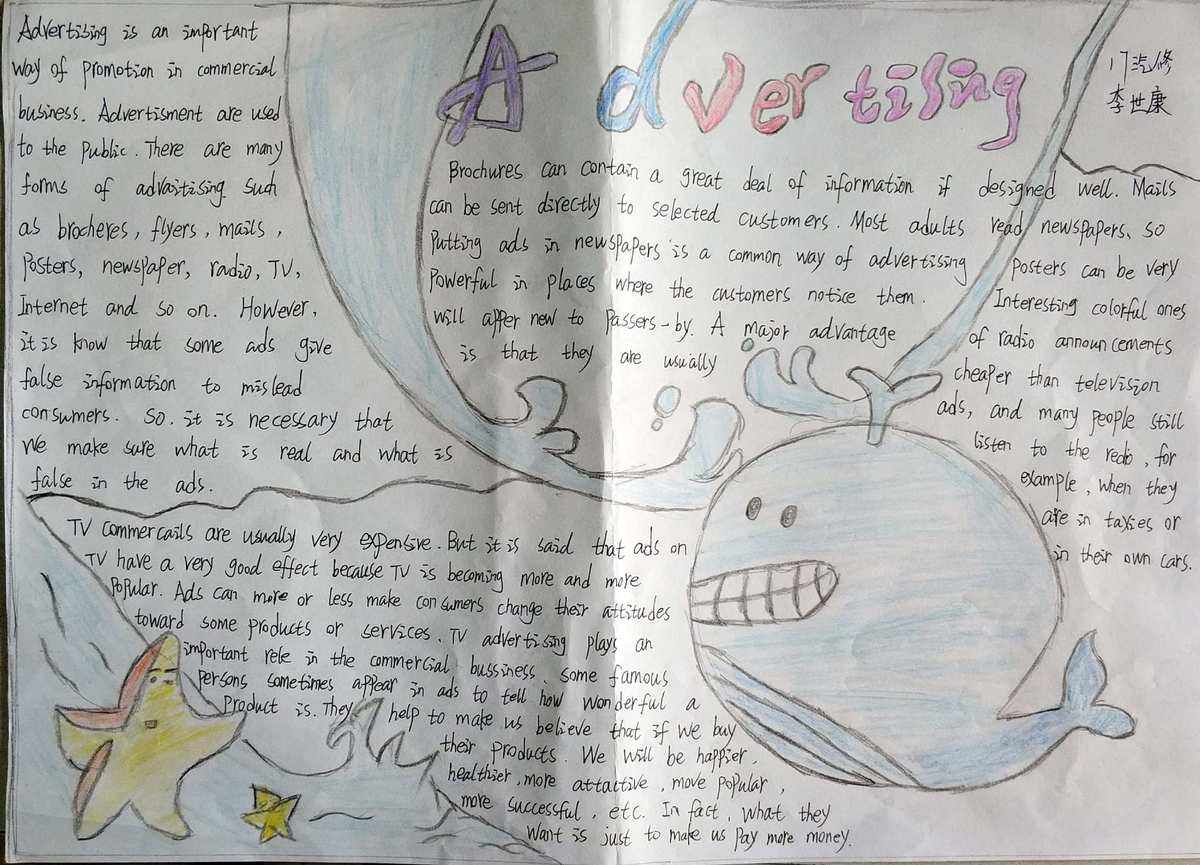 Advertising
门汽修
李世康
Advertising is an important
way of promotion in commercial
business. Advertisment are used
to the public. There are many
forms of advaitising such
as brocheres, flyers, mails,
posters, newspaper, radio, TV,
Internet and so on. However,
it is know that some ads give
false information to mislead
consumers. So. it is necessary that
we make sure what is real and what is
false in the ads.
Brochures can contain a great deal of information if designed well. Mails
can be sent directly to selected customers. Most adults read newspapers, so
putting ads in newspapers is a common way of advertising posters can be very
powerful in places where the customers notice them. Interesting colorful ones
will apper new to passers-by. A major advantage of radio announcements
is that they are usually cheaper than television
ads, and many people still
listen to the redo, for
example, when they
are in taxies or
in their own cars.
TV commercails are usually very expensive. But it is said that ads on
TV have a very good effect because TV is becoming more and more
popular. Ads can more or less make consumers change their attitudes
toward some products or services. TV advertising plays an
important rele in the commercial bussiness. some famous
persons sometimes appear in ads to tell how wonderful a
product is. They help to make us believe that if we buy
their products. We will be happier,
healthier, more attactive, move popular,
more successful, etc. In fact, what they
want is just to make us pay more money.